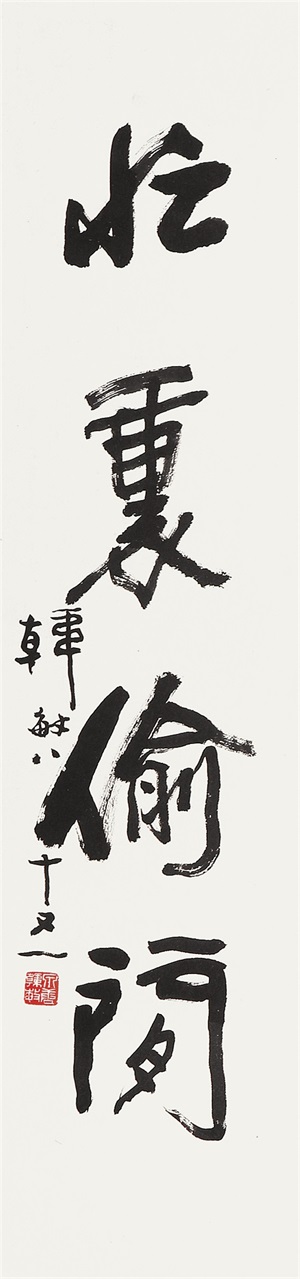 忙裏偷閒
韓敏八十又一